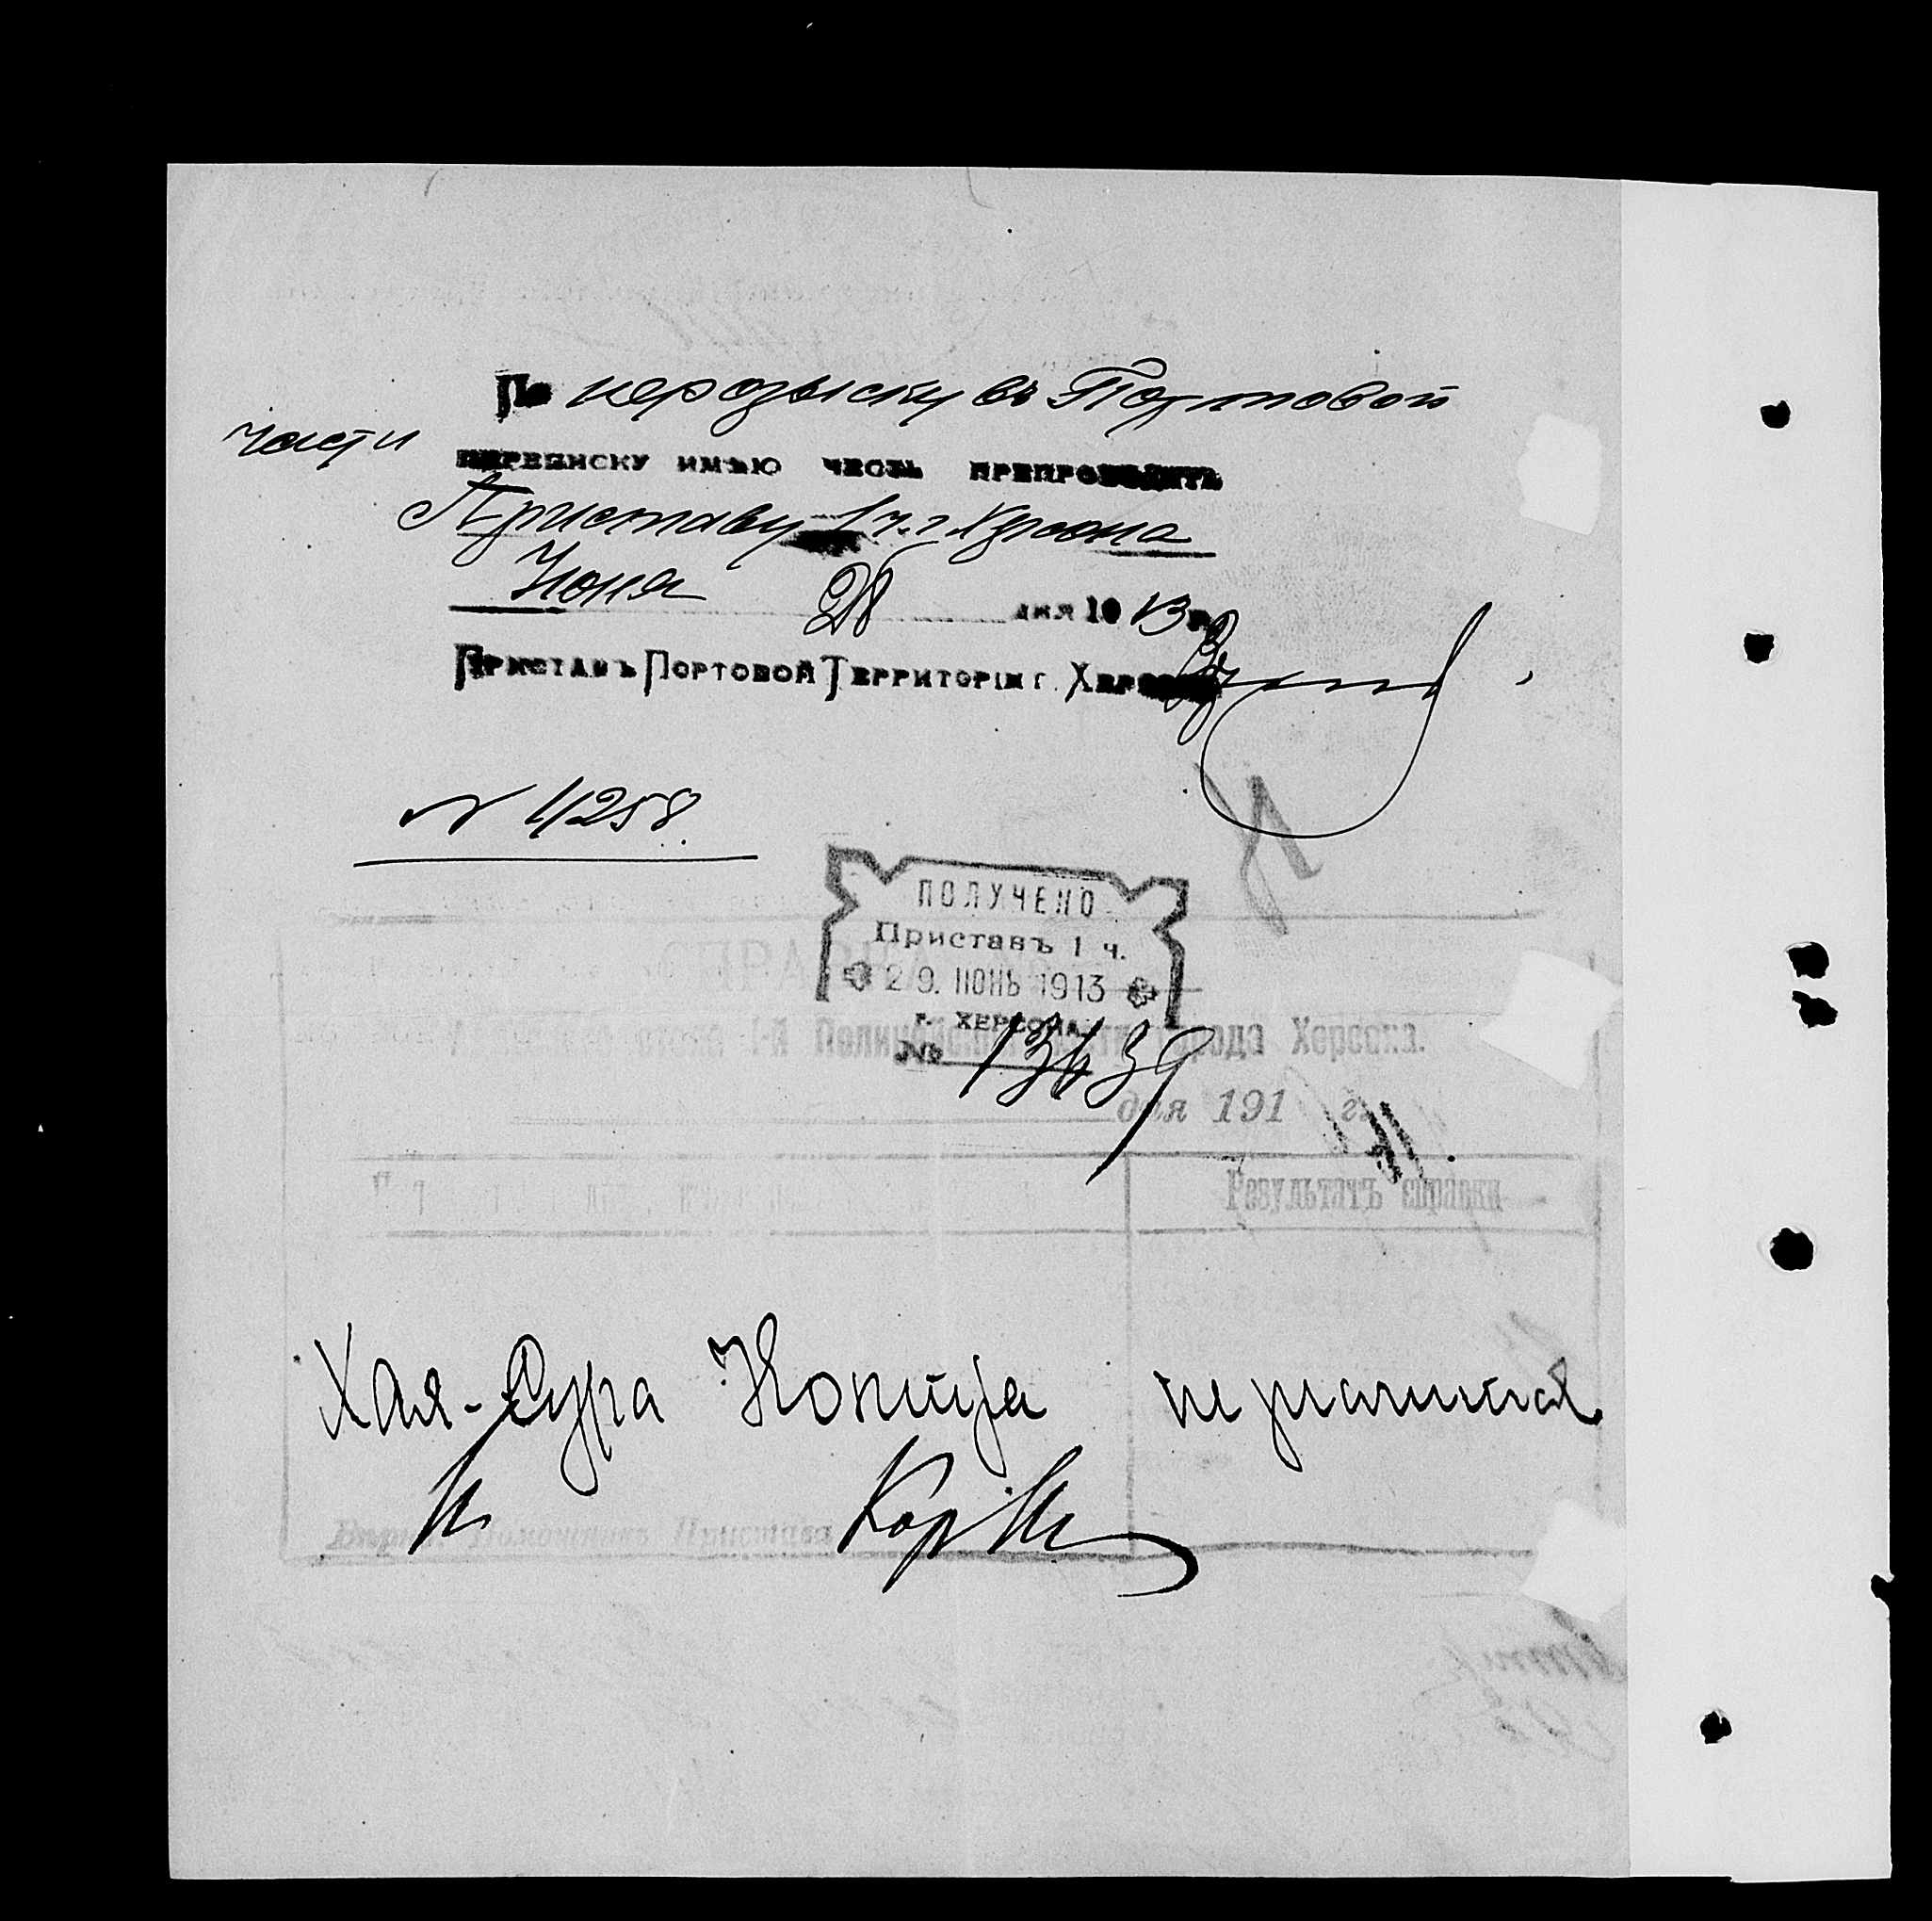 По нерозыску въ Портовой
части
переписку имѣю честь препроводить
Приставу 1 ч. г. Херсона
Июня 28 дня 1913 г.
Приставъ Портовой Территоріи г. Херсона
№ 4258.
ПОЛУЧЕНО
Приставъ 1 ч.
29. ІЮНЬ 1913
г. ХЕРСОНА
№ 13639
СПРАВКА
стола 1-й Полицейской части города Херсона.
дня 191 г.
Результатъ справки
Хая-Сура Копнра не значится
Помощникъ Пристава